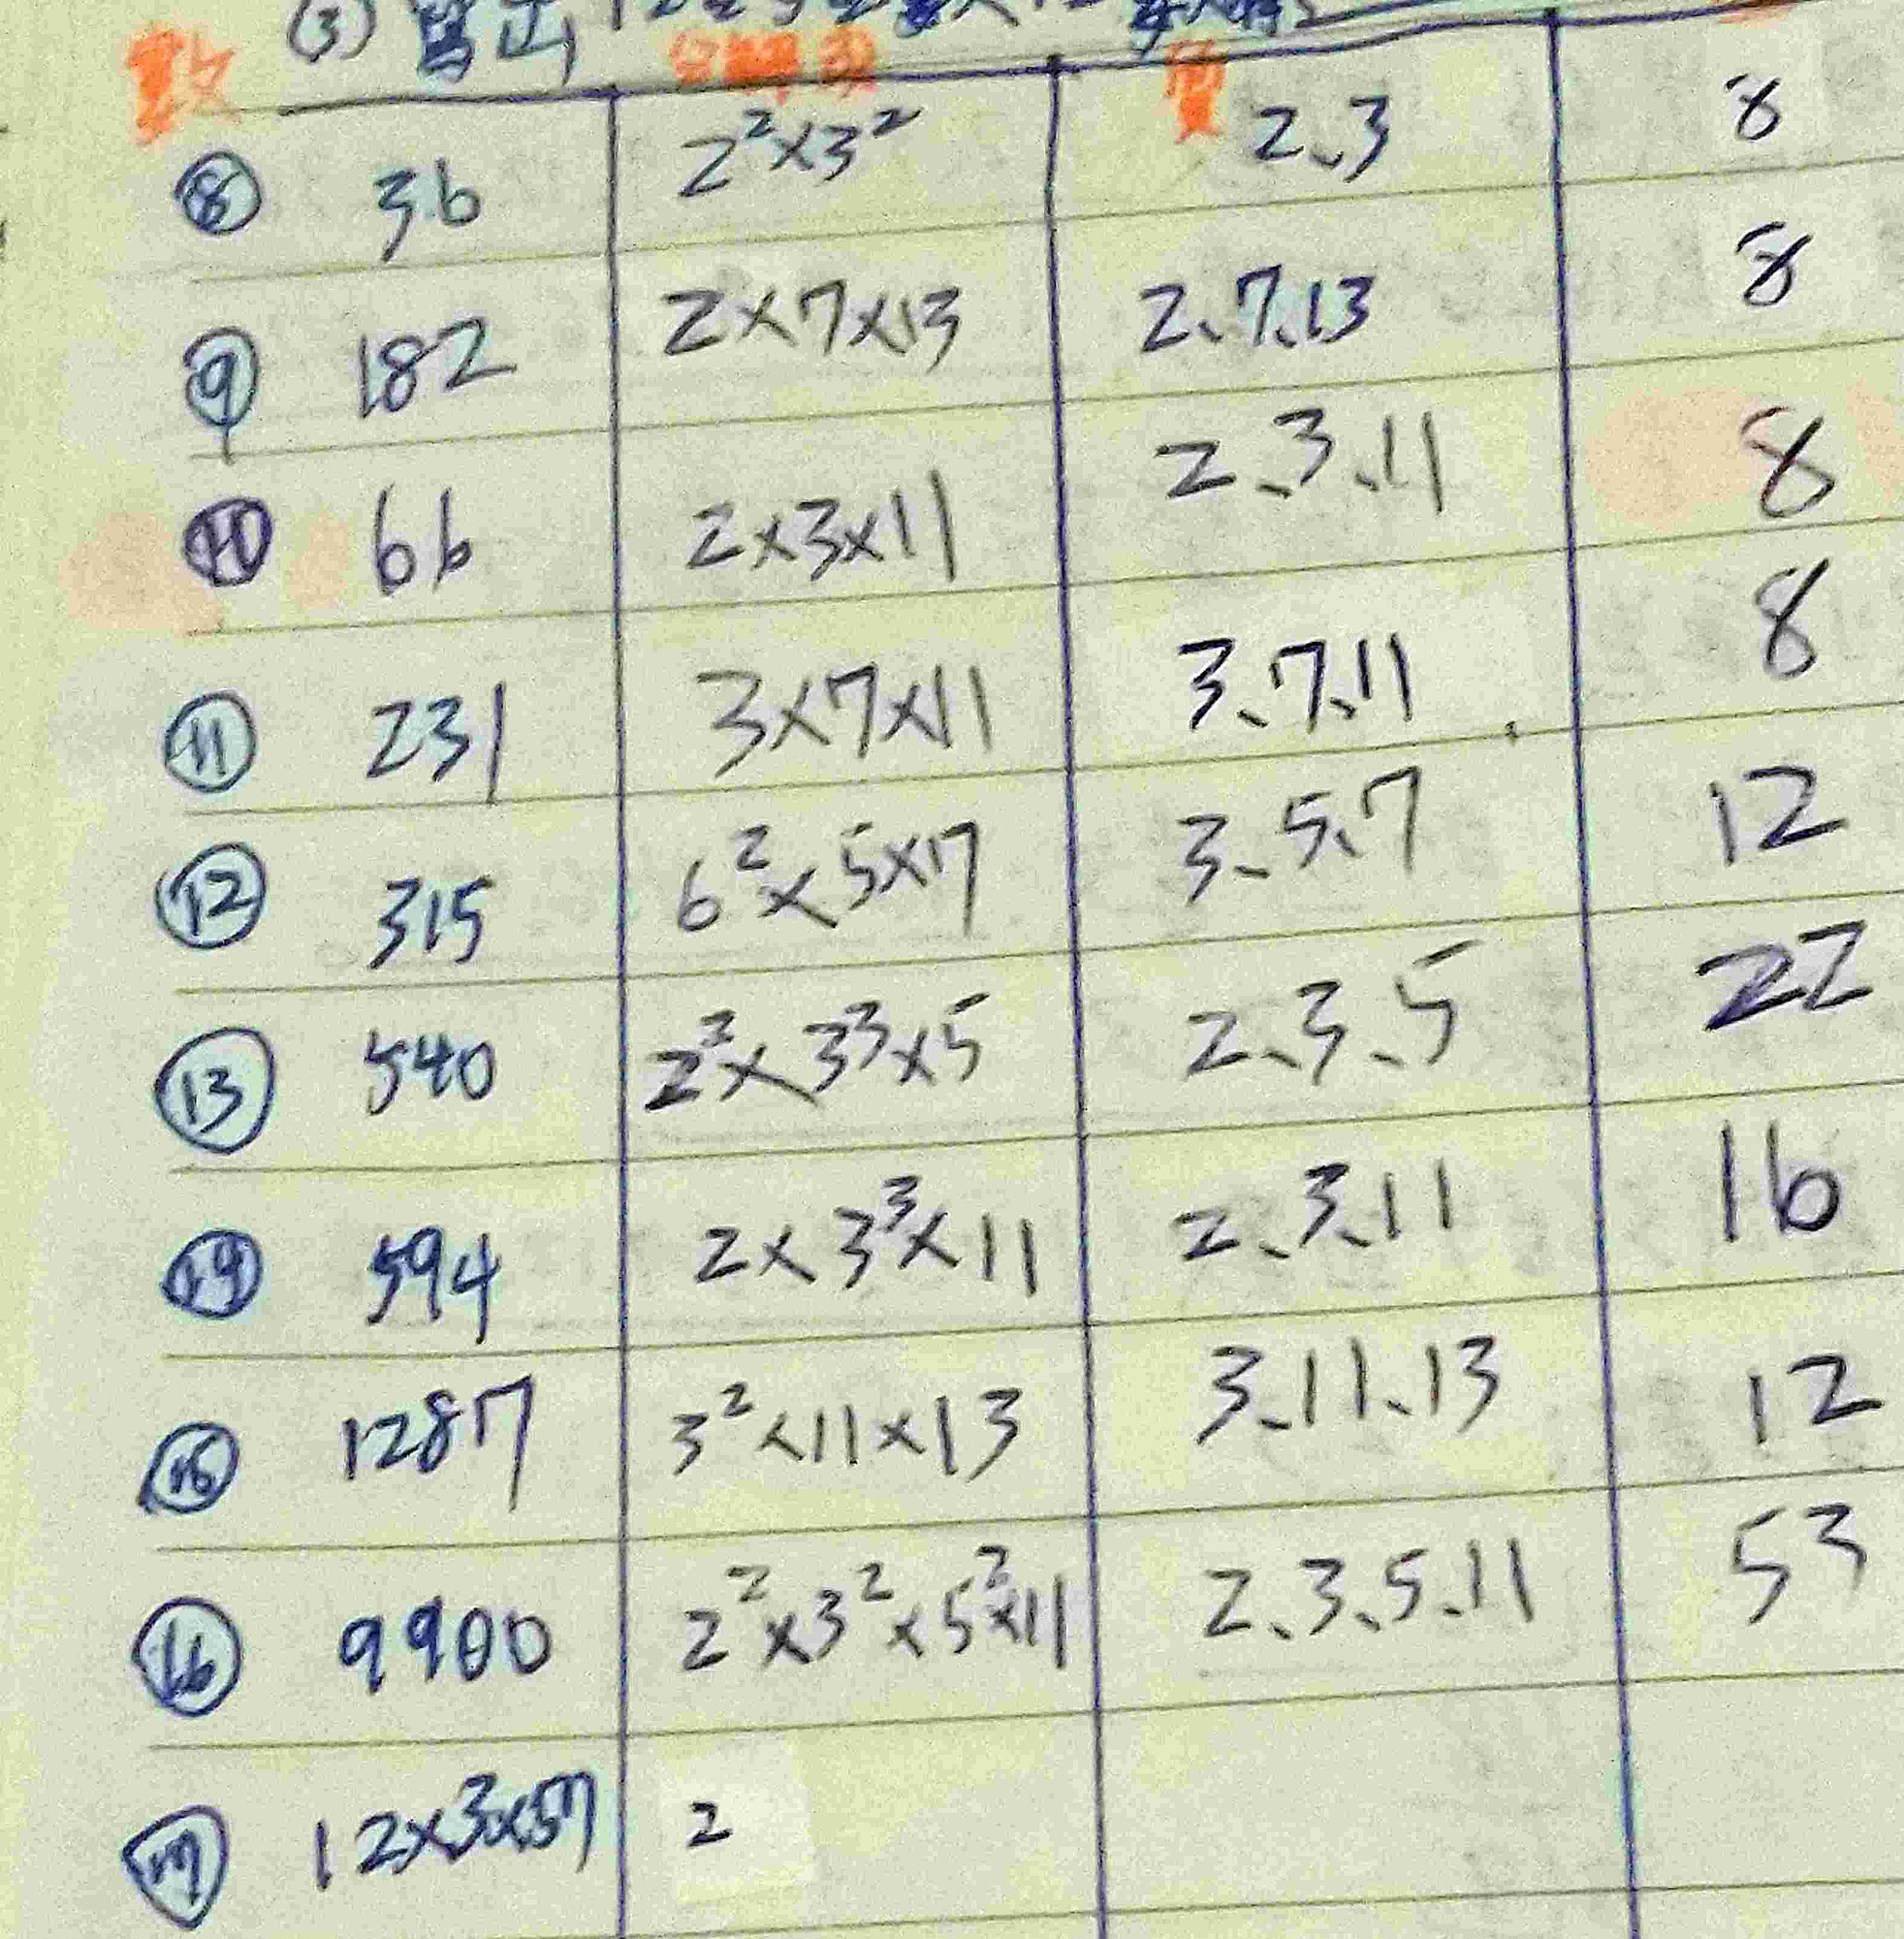 (3) 寫出
數 質
⑧ 36 2²×3² 2、3 8
⑨ 182 2×7×13 2、7、13 8
⑩ 66 2×3×11 2、3、11 8
⑪ 231 3×7×11 3、7、11 8
⑫ 315 6²×5×17 3、5、7 12
⑬ 540 2²×3³×5 2、3、5 22
⑭ 594 2×3³×11 2、3、11 16
⑮ 1287 3²×11×13 3、11、13 12
⑯ 9900 2²×3²×5²×11 2、3、5、11 53
⑰ 12×3×57 2